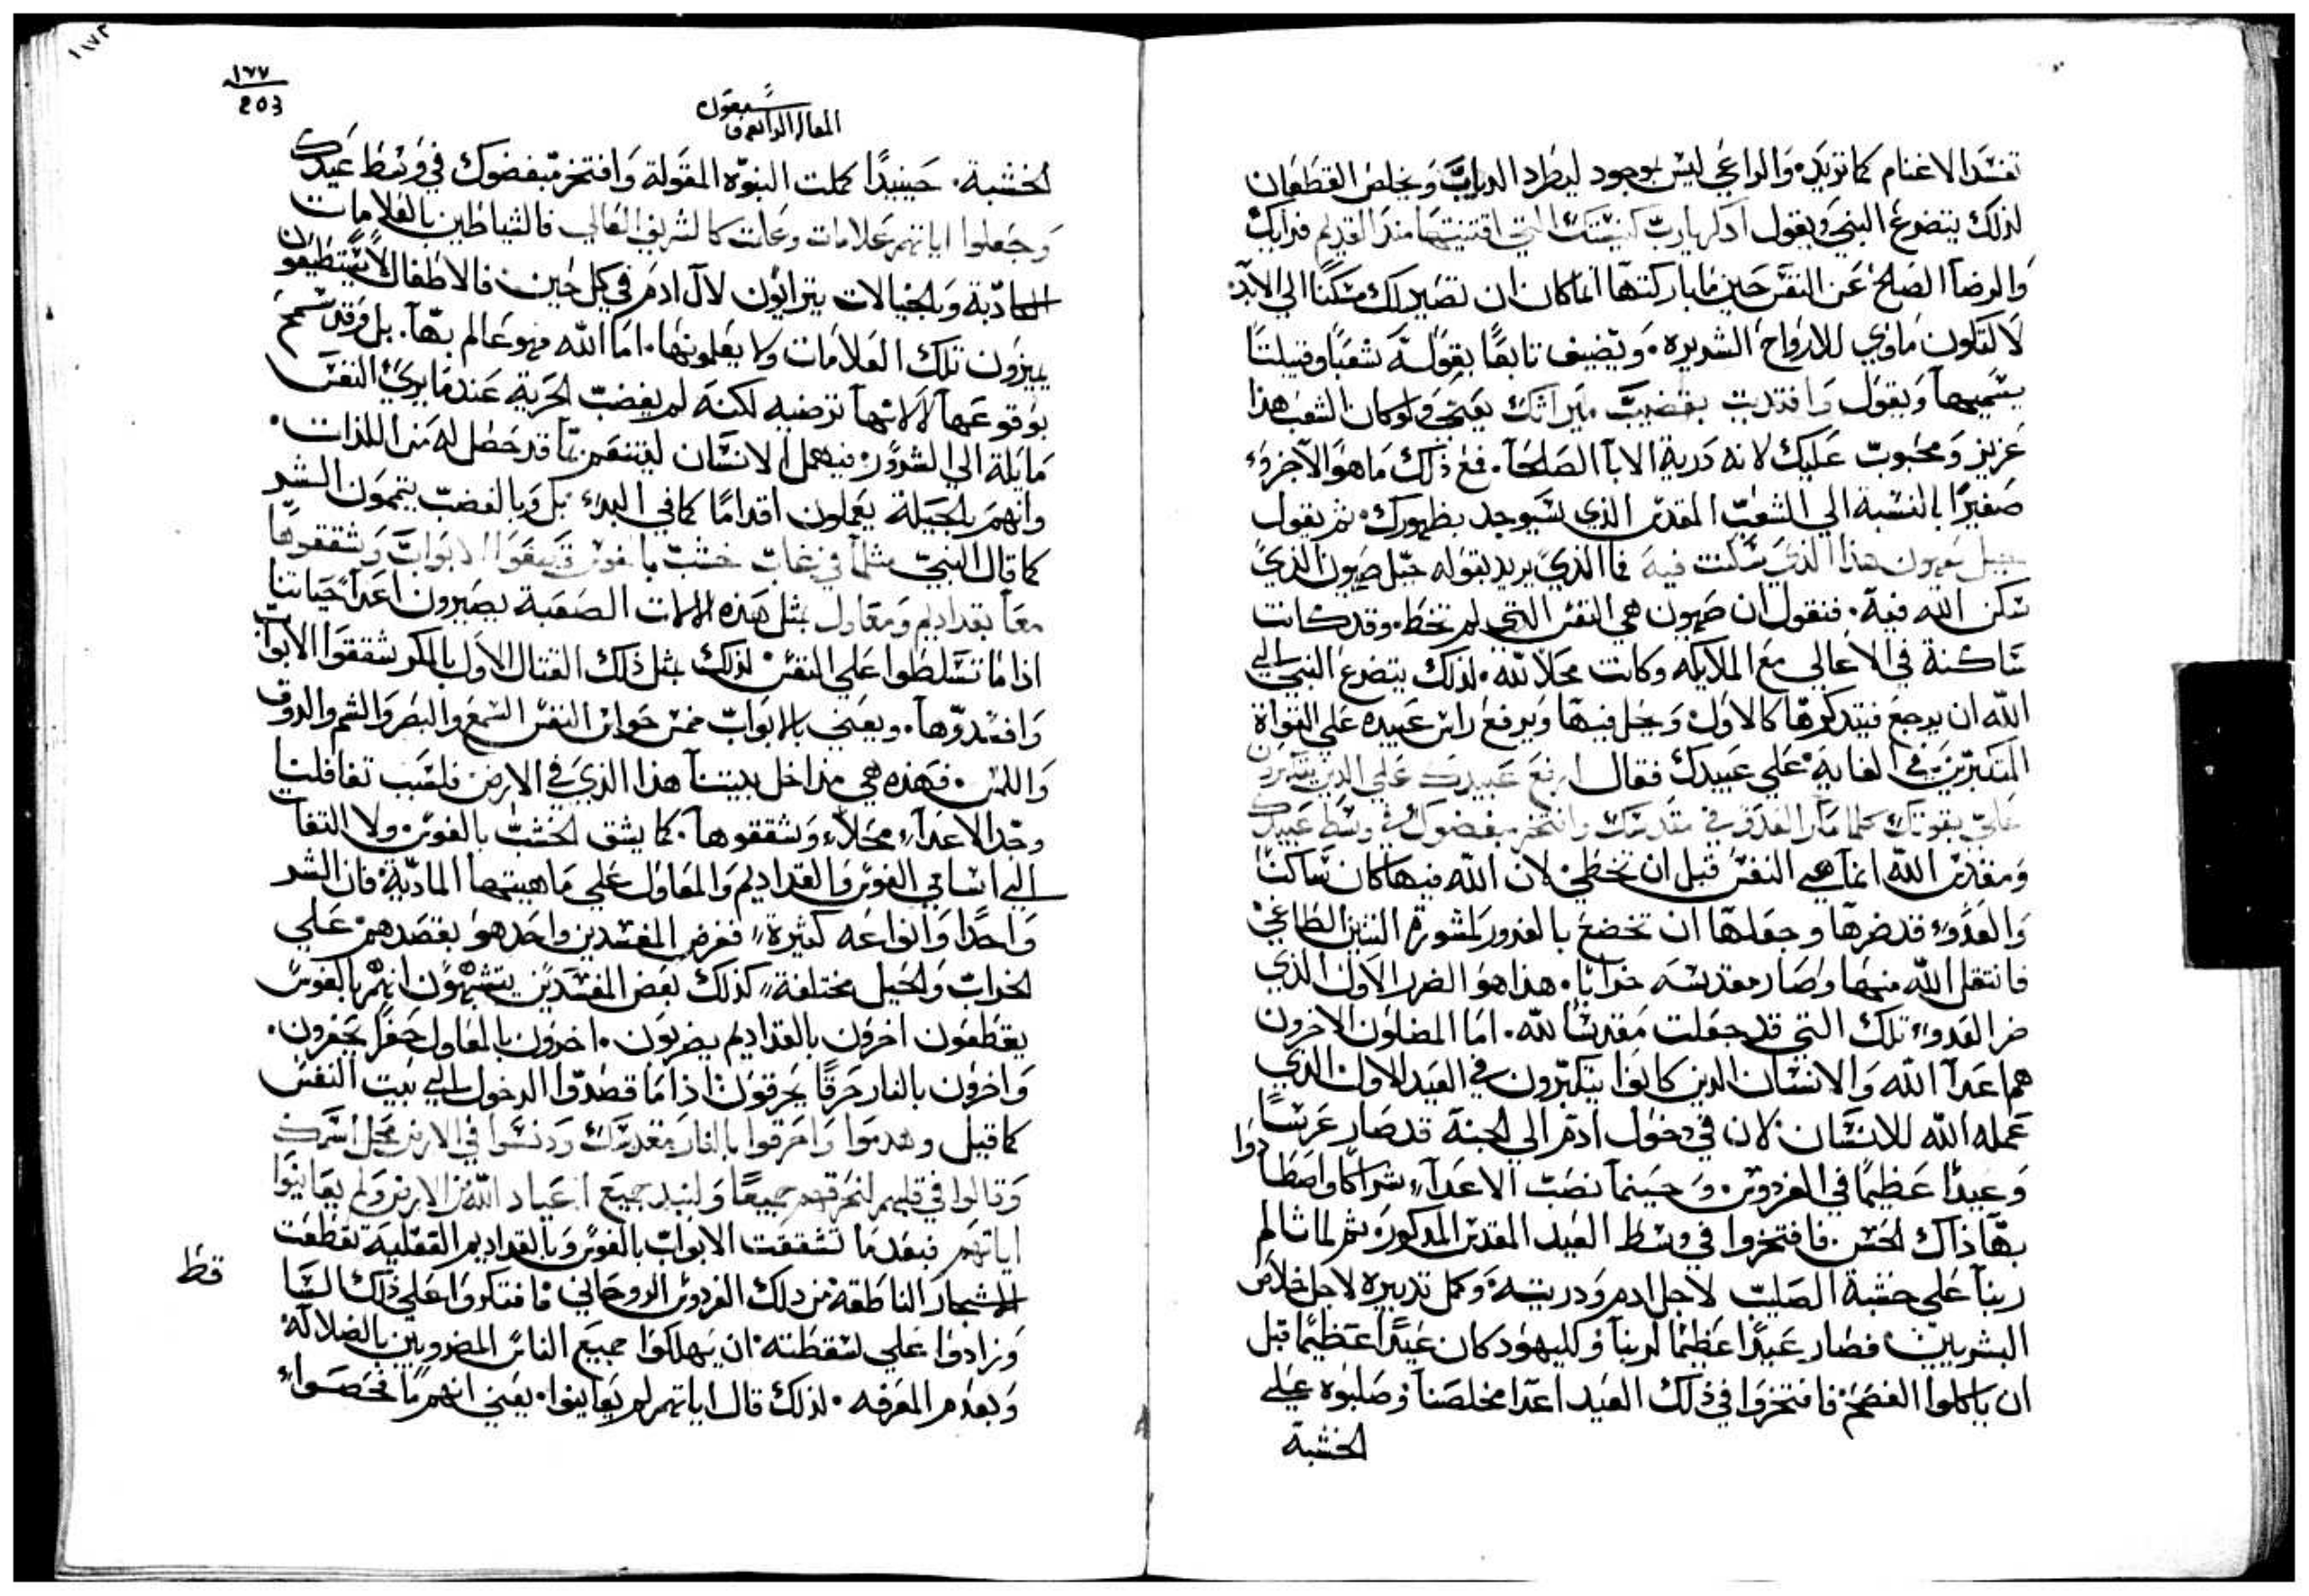 تفسد الاغنام كما تريد. والراعي ليس بوجود ليطرد الدياب ويخلص القطعان
لذلك يتضرع النبي ويقول ادكر يارب كنيستك التي اقتنيتها منذ القديم فرايك
والرضا الصلح عن النفس حين ما باركتها انما كان ان تصير لك مسكنًا الي الابد.
لا لتكون ماوي للارواح الشريره. ويضيف تابعًا بقوله شعبًا وقبيلتًا
يسميها ويقول وافتديت بقضيب ميراثك يعني ولو كان الشعب هذا
عزيز ومحبوب عليك لانه درية الابا الصلحا. فمع ذلك ما هو الاجزوء
صغيرًا بالنسبة الي الشعب المقدس الذي سيوجد بظهورك. ثم يقول
جبل صهيون هذا الذي سكنت فيه فما الذي يريد بقوله جبل صهيون الذي
سكن الله فيه. فنقول ان صهيون هي النفس التي لم تخط. وقد كانت
ساكنة في الاعالي مع الملايكه وكانت محلا لله. لذلك يتضرع النبي الي
الله ان يرجع فيتدكرها كالاول ويحل فيها ويرفع راس عبيده علي القواة
المتكبرين في الغاية علي عبيدك فقال ارفع عبيدك علي الدين يتكبرون
علي بقوتك كلما مار العدو في مقدسك وافتخر مبغضوك في وسط عيدك
ومقدس الله انما هي النفس قبل ان تخطي لان الله فيها كان ساكنًا
والعدو قد ضرها وجعلها ان تخضع بالغرور لمشورة التنين الطاغي
فانتقل الله منها وصار مقدسه خرابًا. هذا هو الضرر الاول الذي
ضر العدو تلك التي قد جعلت مقدسًا لله. اما المضلون الاخرون
هم اعدا الله والانسان الدين كانوا يتكبرون في العيد الاول الذي
عمله الله للانسان. لان في دخول ادم الي الجنة قد صار عرسًا
وعيدًا عظيمًا في الفردوس. وحينما نصب الاعداء شراكًا واصطادوا
بها ذاك الحسن. فافتخروا في وسط العيد المقدس المدكور. ثم لما تالم
ربنا علي خشبة الصليب لاجل ادم ودريته وكمل تدبيره لاجل خلاص
البشريين فصار عيدًا عظيمًا لربنا ولليهود كان عيدًا عظيمًا قبل
ان ياكلوا الفصح فافتخروا في ذلك العيد اعدا مخلصنا وصلبوه علي
الخشبة
١٧٧
203
المقاله الرابعه و
سبعون
الخشبة. حينيدًا كملت النبوّه المقولة وافتخر مبغضوك في وسط عيدك
وجعلوا اياتهم علامات وعلمت كالشريف العالي فالشياطين بالعلامات
المادّية وبالخيالات يترايون لال ادم في كل حين. فالاطفال لا يستطيعون
يميزون تلك العلامات ولا يعلمونها. اما الله فهو عالم بها. بل وقد سمح
بوقوعها لا لانها ترضيه لكنه لم يغضب الحرية عندما يري النفس
مايلة الي الشرور. فيهمل الانسان ليتنقم بما قد حصل له من اللذات.
وانهم بالحيلة يعملون اقدامًا كما في البدء بل وبالغضب يتممون الشر
كما قال النبي مثلما في غابة خشب بالفوس قطعوا الابواب وشققوها
معًا بقداديم ومعاول بمثل هذه الالات الصعبة يصيرون اعدا حياتنا
اذا ما تسلطوا علي النفس. لذلك بمثل ذلك القتال الاول بالمكر شققوا الابواب
وافسدوها. ويعني بالابواب خمس حواس النفس السمع والبصر والشم والدوق
واللمس. فهذه هي مداخل بيتنا هذا الذي في الارض فلسبب تغافلنا
وجد الاعداء محلاً وشققوها. كما يشق الخشب بالفوس. ولا التفات
الي اسامي الفوس والقداديم والمعاول علي ماهيتها المادّية. فان الشر
واحدًا وانواعه كثيرة. فغرض المفسدين واحد هو بقصدهم علي
الخراب والحيل مختلفة. كذلك بعض المفسدين يتشبهون انهم بالفوس
يقطعون اخرون بالقداديم يضربون. اخرون بالمعاول حفرًا يحفرون.
واخرون بالنار حرقًا يحرقون. اذا ما قصدوا الدخول الي بيت النفس
كما قيل وهدموا واحرقوا بالنار مقدسك ودنسوا في الارض محل اسمك
وقالوا في قلبهم لنحرقهم جميعًا ولنبد جميع اعياد الله من الارض ولم يعاينوا
اياتهم فبعد ما تشققت الابواب بالفوس وبالقداديم العقلية تقطعت
الاشجار الناطقة من دلك الفردوس الروحاني فافتكروا علي ذلك الساقط
وزادوا علي سقطته ان يهلكوا جميع الناس المضروبين بالضلالة
وبعدم المعرفه. لذلك قال اياتهم لم يعاينوا. يعني انهم ما فحصوا